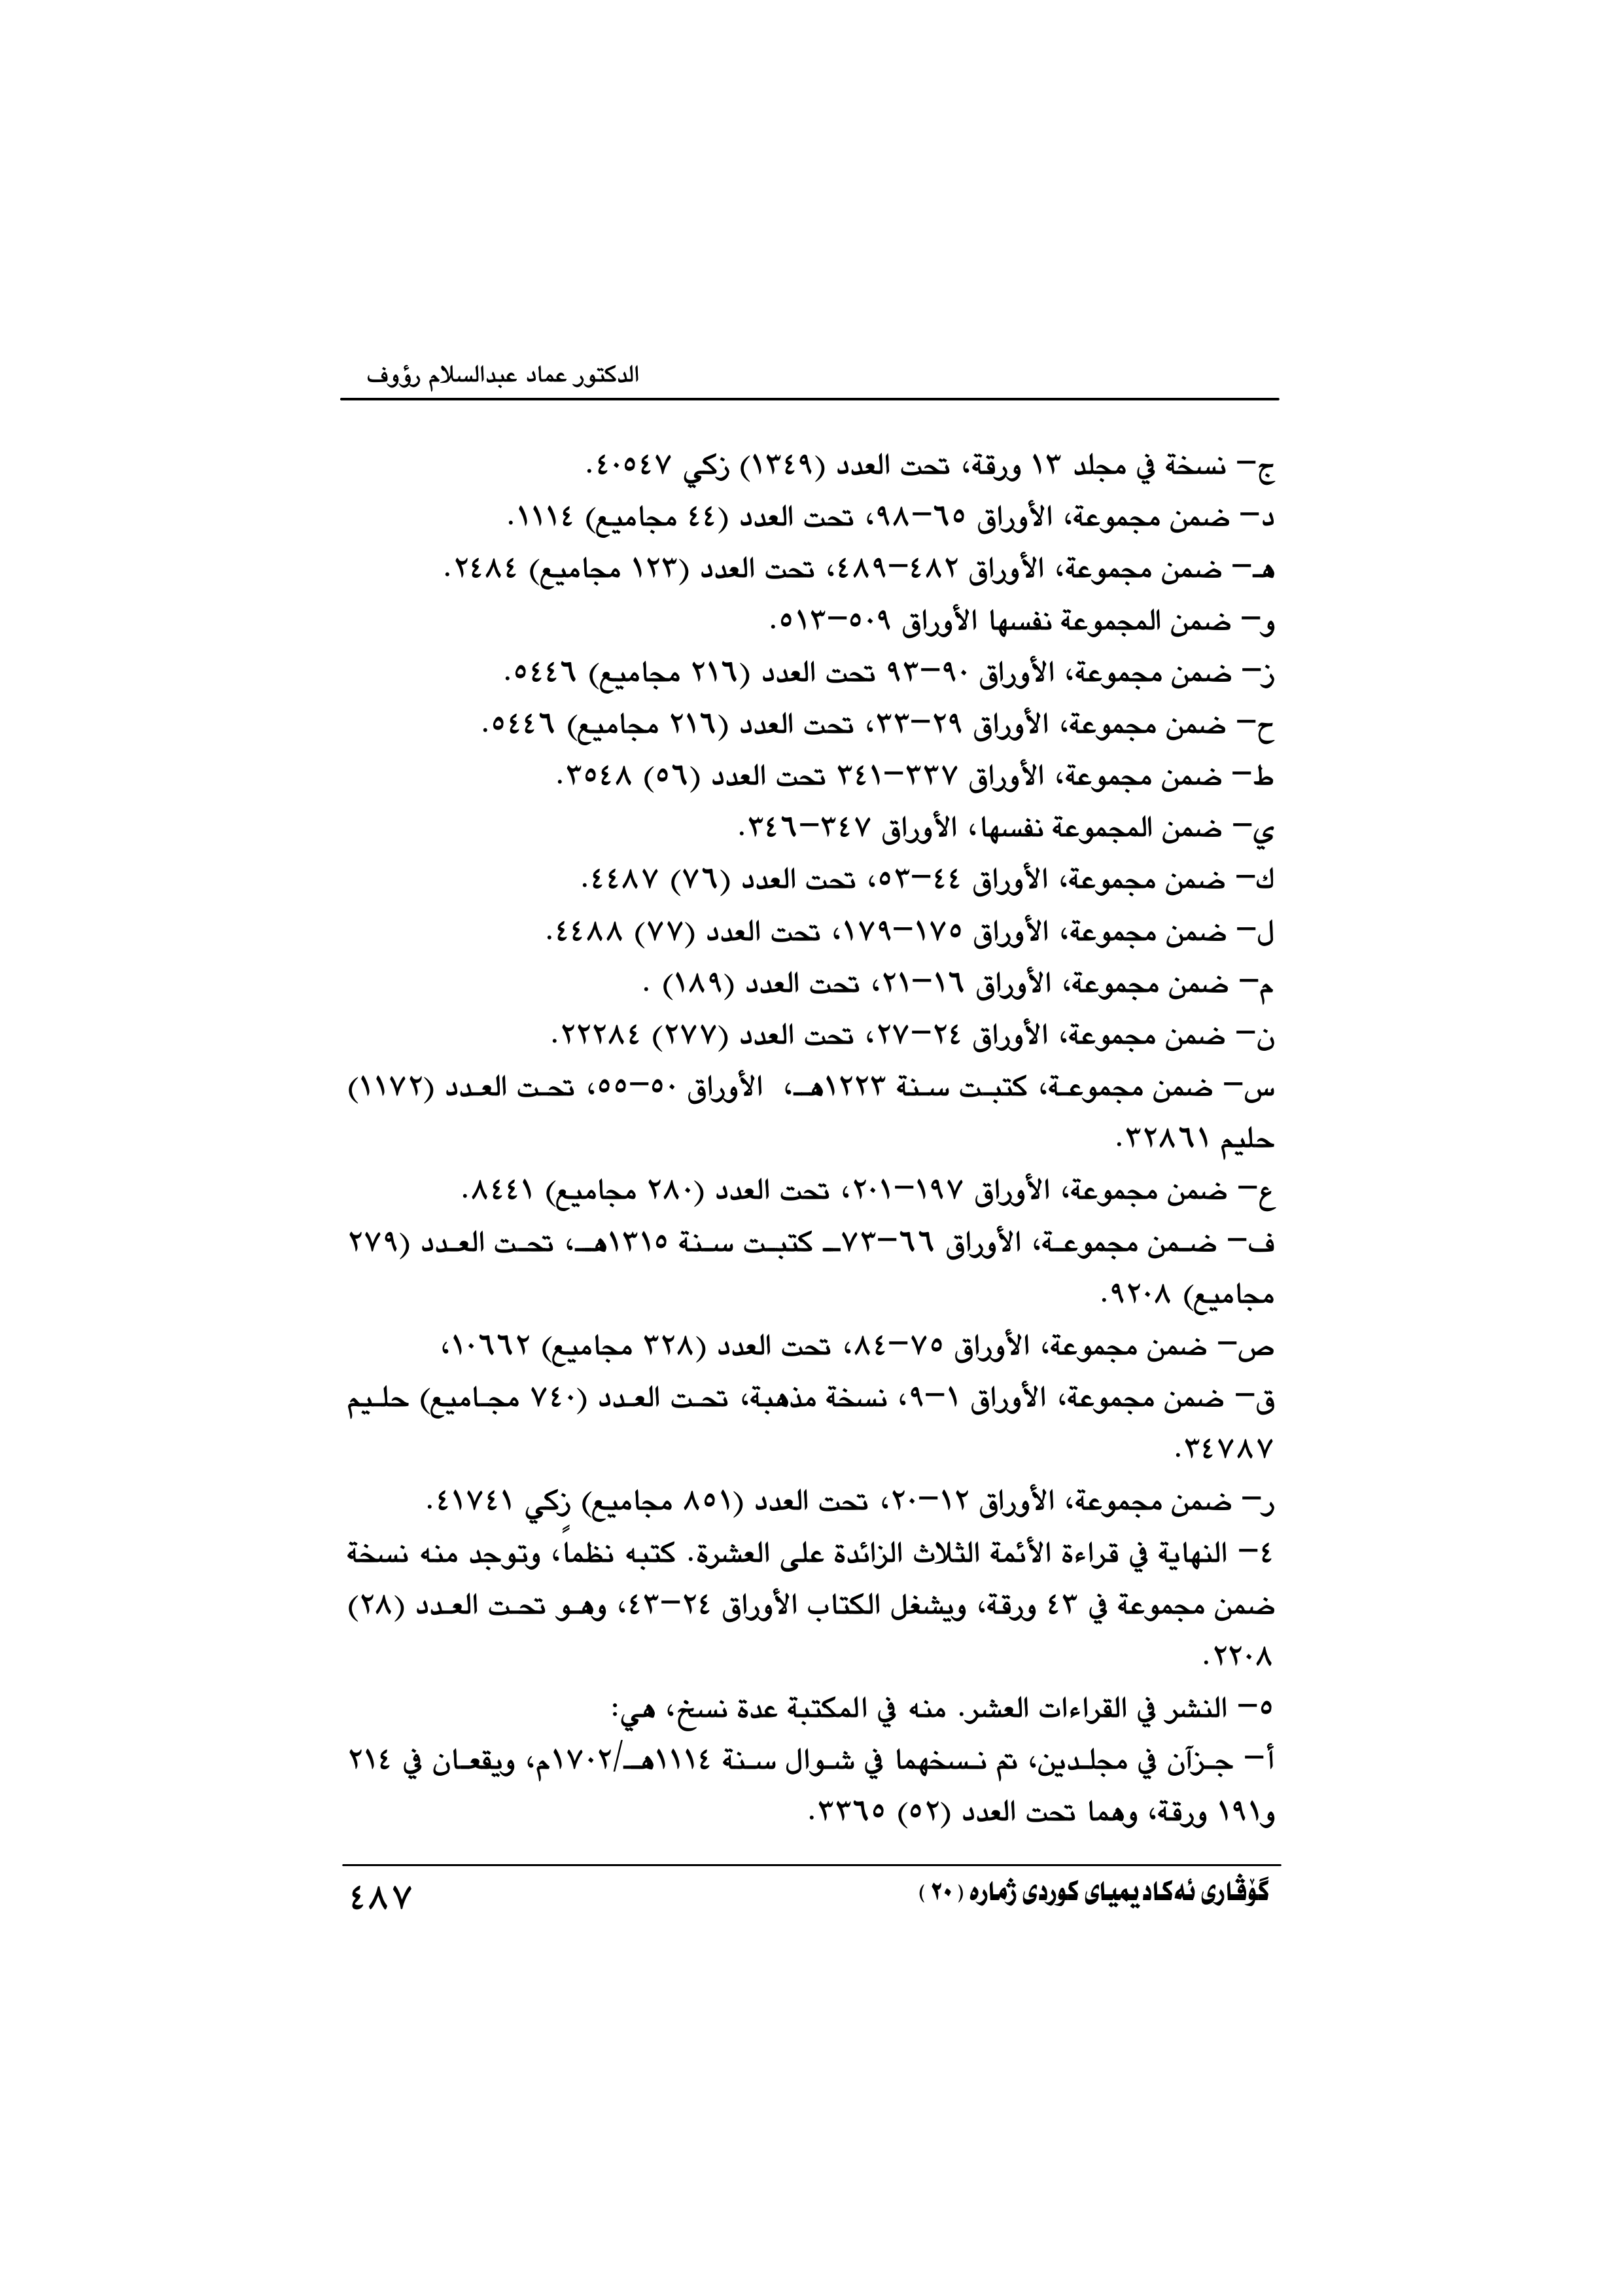 الدكتور عماد عبدالسلام رؤوف
ج- نسخة في مجلد ١٣ ورقة، تحت العدد (١٣٤٩) زكي ٤٠٥٤٧.
د- ضمن مجموعة، الأوراق ٦٥-٩٨، تحت العدد (٤٤ مجاميع) ١١١٤.
هـ- ضمن مجموعة، الأوراق ٤٨٢-٤٨٩، تحت العدد (١٢٣ مجاميع) ٢٤٨٤.
و- ضمن المجموعة نفسها الأوراق ٥٠٩-٥١٣.
ز- ضمن مجموعة، الأوراق ٩٠-٩٣ تحت العدد (٢١٦ مجاميع) ٥٤٤٦.
ح- ضمن مجموعة، الأوراق ٢٩-٣٣، تحت العدد (٢١٦ مجاميع) ٥٤٤٦.
ط- ضمن مجموعة، الأوراق ٣٣٧-٣٤١ تحت العدد (٥٦) ٣٥٤٨.
ي- ضمن المجموعة نفسها، الأوراق ٣٤٧-٣٤٦.
ك- ضمن مجموعة، الأوراق ٤٤-٥٣، تحت العدد (٧٦) ٤٤٨٧.
ل- ضمن مجموعة، الأوراق ١٧٥-١٧٩، تحت العدد (٧٧) ٤٤٨٨.
م- ضمن مجموعة، الأوراق ١٦-٢١، تحت العدد (١٨٩) .
ن- ضمن مجموعة، الأوراق ٢٤-٢٧، تحت العدد (٢٧٧) ٢٢٢٨٤.
س- ضمن مجموعـة، كتبـت سـنة ١٢٢٣هــ، الأوراق ٥٠-٥٥، تحـت العـدد (١١٧٢)
حليم ٣٢٨٦١.
ع- ضمن مجموعة، الأوراق ١٩٧-٢٠١، تحت العدد (٢٨٠ مجاميع) ٨٤٤١.
ف- ضـمن مجموعـة، الأوراق ٦٦-٧٣ـ كتبـت سـنة ١٣١٥هــ، تحـت العـدد (٢٧٩
مجاميع) ٩٢٠٨.
ص- ضمن مجموعة، الأوراق ٧٥-٨٤، تحت العدد (٣٢٨ مجاميع) ١٠٦٦٢،
ق- ضمن مجموعة، الأوراق ١-٩، نسخة مذهبة، تحـت العـدد (٧٤٠ مجـاميع) حلـيم
٣٤٧٨٧.
ر- ضمن مجموعة، الأوراق ١٢-٢٠، تحت العدد (٨٥١ مجاميع) زكي ٤١٧٤١.
٤- النهاية في قراءة الأئمة الثلاث الزائدة على العشرة. كتبه نظماً، وتوجد منه نسخة
ضمن مجموعة في ٤٣ ورقة، ويشغل الكتاب الأوراق ٢٤-٤٣، وهـو تحـت العـدد (٢٨)
٢٢٠٨.
٥- النشر في القراءات العشر. منه في المكتبة عدة نسخ، هي:
أ- جـزآن في مجلـدين، تم نـسخهما في شـوال سـنة ١١١٤هــ/١٧٠٢م، ويقعـان في ٢١٤
و١٩١ ورقة، وهما تحت العدد (٥٢) ٣٣٦٥.
گۆڤاری ئەکادیمیای کوردی ژمارە (٢٠)
٤٨٧